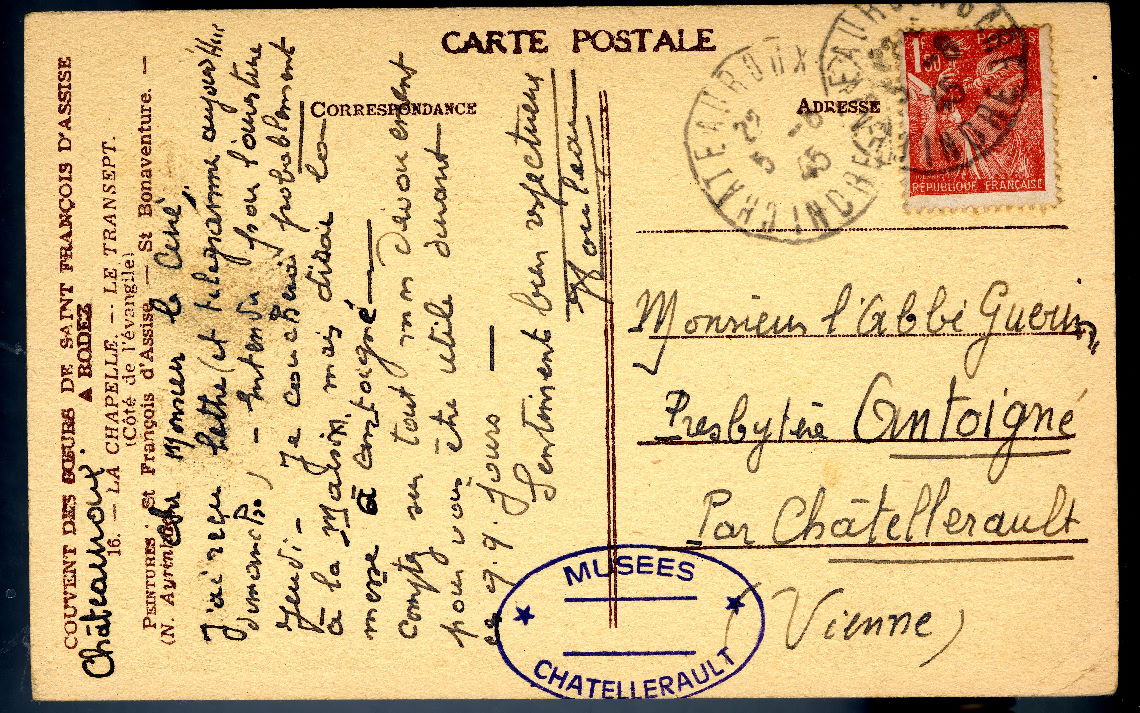 CARTE POSTALE
CORRESPONDANCE
ADRESSE
COUVENT DES SŒURS DE SAINT FRANÇOIS D'ASSISE
A RODEZ
16. — LA CHAPELLE. — LE TRANSEPT.
(Côté de l'évangile)
PEINTURES : St François d'Assise — St Bonaventure. —
(N.
Châteauroux.
Cher Monsieur le Curé
J'ai reçu lettre (et telegramme aujourd'hui
dimanche) — Entendu pour l'ousture
Jeudi — Je coucherai probablement
à la Maison mais dirai la
messe à Antoigné —
Comptez sur tout mon dévouement
pour vous être utile durant
ces qq. jours —
Sentiments bien respectueux
CHATEAUROUX
INDRE
22
5 - 6
45
CHATEAUROUX
INDRE
1F
POSTES
RÉPUBLIQUE FRANÇAISE
Monsieur l'Abbé Guerin
Presbytère Antoigné
Par Châtellerault
(Vienne)
MUSEES
CHATELLERAULT